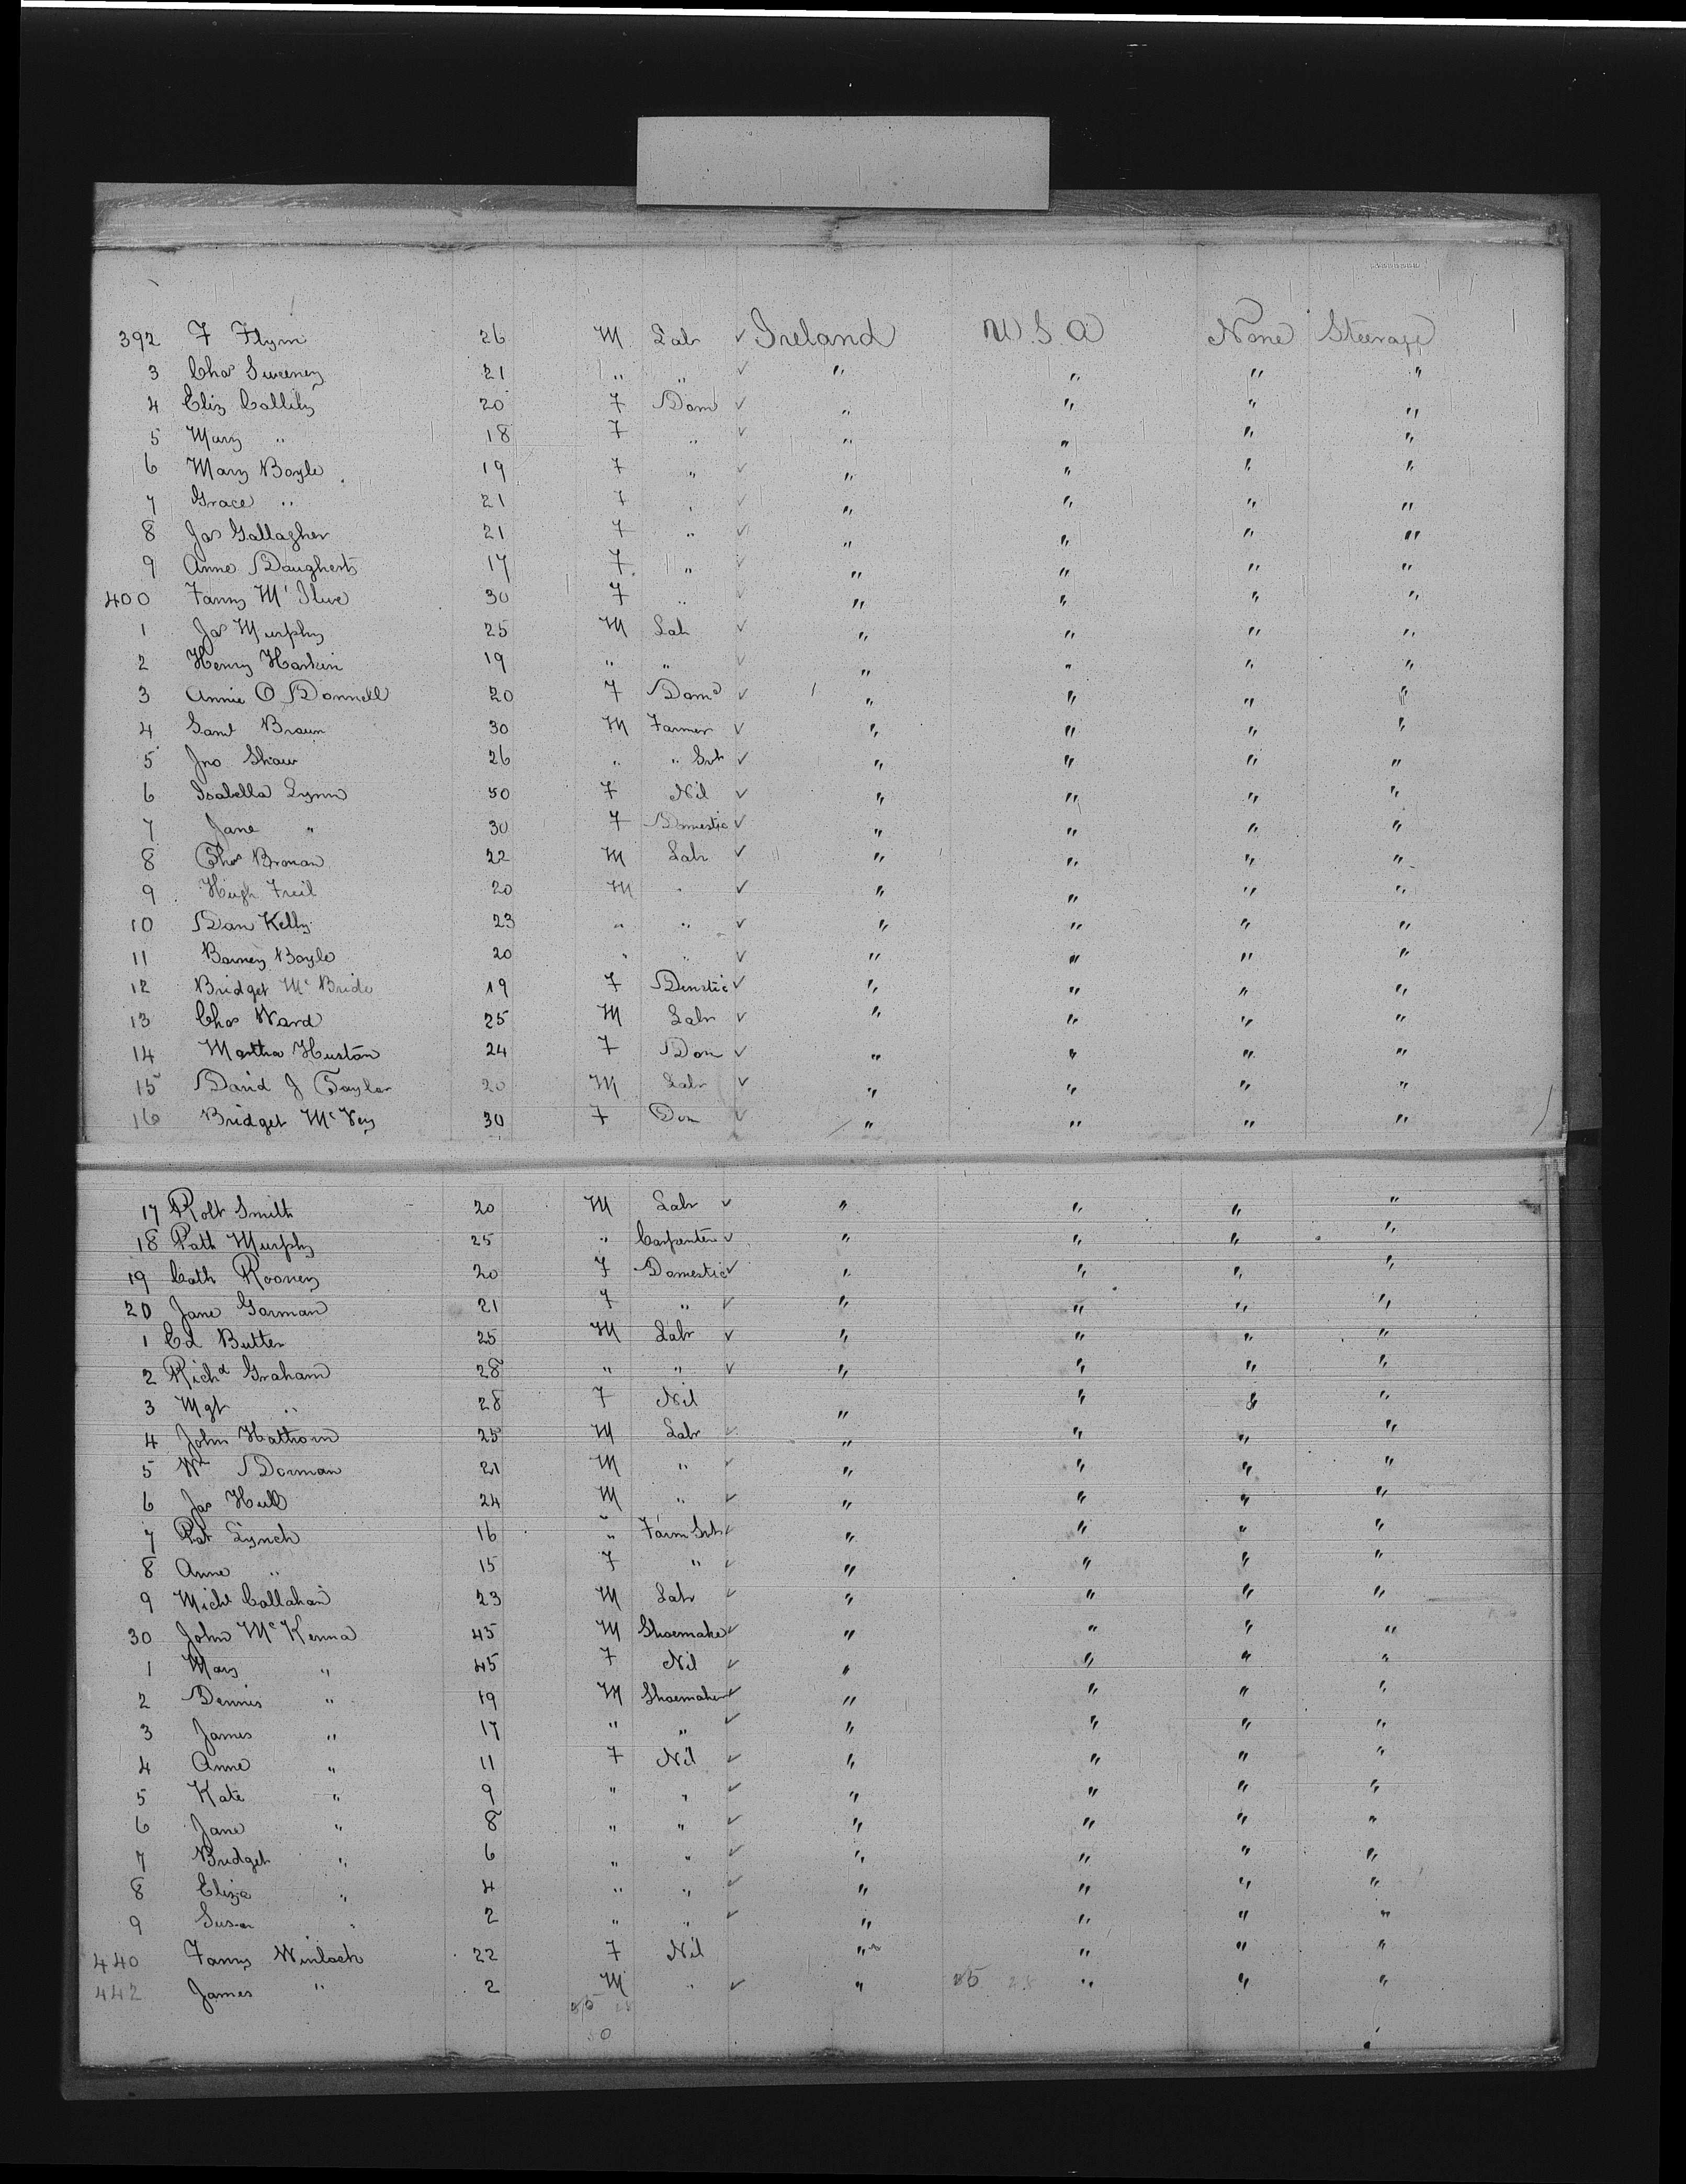 392 F Flynn 26 M Labr ✓ Ireland U.S.A None Steerage
3 Chas Sweeney 21 " " ✓ " " " "
4 Eliz Collily 20 F Dom ✓ " " " "
5 Mary " 18 F " ✓ " " " "
6 Mary Boyle 19 F " ✓ " " " "
7 Grace " 21 F " ✓ " " " "
8 Jas Gallagher 21 F " ✓ " " " "
9 Anne Daugherty 17 F " ✓ " " " "
400 Fanny 30 F " ✓ " " " "
1 Jas Murphy 25 M Lab ✓ " " " "
2 Henry Harkin 19 " " ✓ " " " "
3 Annie O Donnell 20 F Dom ✓ " " " "
4 Saml Braun 30 M Farmer ✓ " " " "
5 Jno Shaw 26 " " Svt ✓ " " " "
6 Isabella Lynn 50 F Nil ✓ " " " "
7 Jane " 30 F Domestic ✓ " " " "
8 Thos Bronan 22 M Labr ✓ " " " "
9 Hugh Freil 20 M " ✓ " " " "
10 Dan Kelly 23 " " ✓ " " " "
11 Barney Boyle 20 " " ✓ " " " "
12 Bridget Mc Bride 19 F Dmstic ✓ " " " "
13 Chas Ward 25 M Labr ✓ " " " "
14 Martha Huston 24 F Dom ✓ " " " "
15 David J Taylor 20 M Labr ✓ " " " "
16 Bridget Mc Vey 30 F Dom ✓ " " " "
17 Robt Smith 20 M Labr ✓ " " " "
18 Path Murphy 25 " Carpenter ✓ " " " "
19 Cath Rooney 20 F Domestic ✓ " " " "
20 Jane Gorman 21 F " ✓ " " " "
1 Ed Butler 25 M Labr ✓ " " " "
2 Richd Graham 28 " " ✓ " " " "
3 Mgt " 28 F Nil " " " "
4 John Hathorn 25 M Labr ✓ " " " "
5 Wm Dorman 21 M " ✓ " " " "
6 Jas Hull 24 M " ✓ " " " "
7 Pat Lynch 16 " Farm Svt ✓ " " " "
8 Anne " 15 F " ✓ " " " "
9 Michl Callahan 23 M Labr ✓ " " " "
30 John Mc Kenna 45 M Shoemaker ✓ " " " "
1 Mary " 45 F Nil ✓ " " " "
2 Dennis " 19 M Shoemaker ✓ " " " "
3 James " 17 " " ✓ " " " "
4 Anne " 11 F Nil ✓ " " " "
5 Kate " 9 " " ✓ " " " "
6 Jane " 8 " " ✓ " " " "
7 Bridget " 6 " " ✓ " " " "
8 Eliza " 4 " " ✓ " " " "
9 Susan " 2 " " ✓ " " " "
440 Fanny Winloch 22 F Nil " " " "
442 James " 2 M " ✓ " " " "